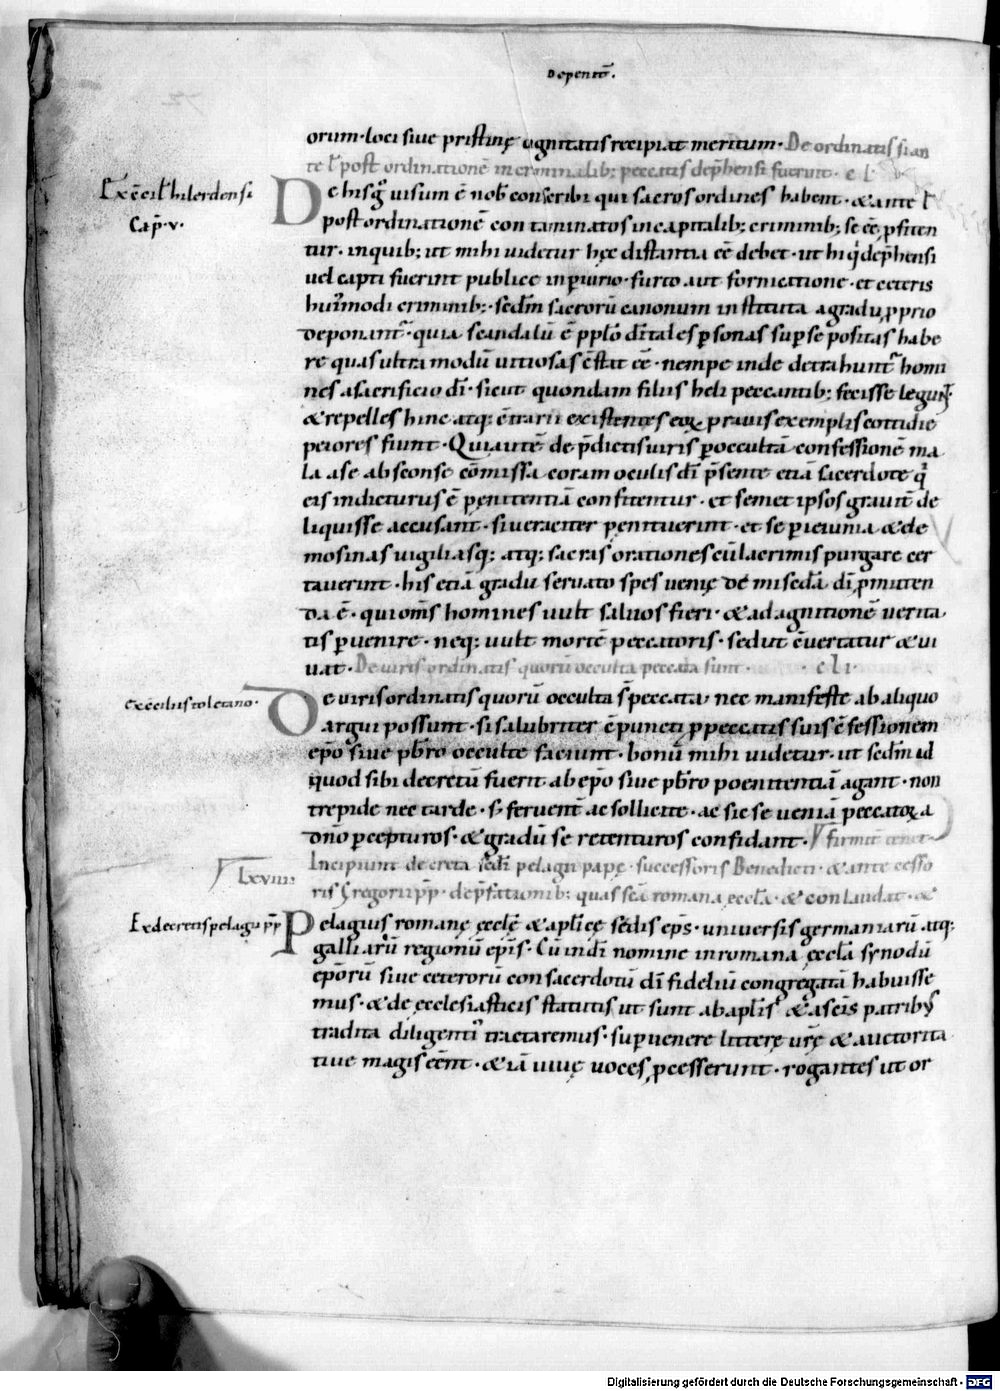 De penit̄.
orum · loci siue pristinę dignitatis recipiat meritum · De ordinatis si an
te l̄ post ordinationē in criminalib; peccatis dep̄hensi fuerint · cl
Ex c̄cil̄ hilerdensi
Cap̄ · v ·
De his g̊ uisum ē nob̄ conscribi qui sacros ordines habent · & ante l̄
post ordinationē contaminatos in capitalib; criminib; se eē p̱fiten
tur · in quib; ut mihi uidetur hęc distantia eē debet · ut hi q̇ dep̄hensi
uel capti fuerint publice in p̱iurio · furto aut fornicatione · et ceteris
hui᷒modi criminib; · secdm̄ sacrorū canonum instituta a gradu p̱prio
deponant᷒ · quia scandalū ē pplo dī tales p̱sonas sup̱ se positas habe
re quas ultra modū uitiosas c̄stat eē · nempe inde detrahunt᷒ homi
nes a sacrificio dī · sicut quondam filiis heli peccantib; fecisse legunt᷒ ·
& repelles hinc atq; c̄trarii existentes eoꝝ prauis exemplis cottidie
peiores fiunt · Qui autē de p̄dictis uiris p̱ occultā confessionē ma
la a se absconse cōmissa coram oculis dī p̄sente etiā sacerdote q̇
eis indicturus ē pęnitentiā confitentur · et semet ipsos grauit̄ de
liquisse accusant · si ueraciter pęnituerint · et se p̱ ieiunia & ele
mosinas uigiliasq; atq; sacras orationes cū lacrimis purgare cer
tauerint · his etiā gradu seruato spes uenię de mis̄c̄dā dī p̱mitten
da ē · qui om̄s homines uult saluos fieri · & ad agnitionē verita
tis p̱uenire · neq; uult mortē peccatoris · sed ut c̄uertatur & ui
uat · De uiris ordinatis quorū occulta peccata sunt · cli ·
ex c̄ciliis toletano ·
De uiris ordinatis quorū occulta s̄ peccata nec manifeste ab aliquo
argui possunt · si salubriter c̄puncti p̱ peccatis suis c̄fessionem
ep̄o siue pb̄ro occulte faciunt · bonū mihi uidetur · ut secdm̄ id
quod sibi decretū fuerit ab ep̄o siue pb̄ro poenitentiā agant · non
trepide nec tarde · s; feruent̄ ac sollicite · ac sic se ueniā peccatoꝝ a
dn̄o p̱cepturos · & gradū se retenturos confidant · firmit̄ tenet
Lxviiii ·
Incipiunt decreta sedi pelagii papę · successoris Benedicti · & antecesso
ris Gregorii pp̄ · de p̄fationib; quas sc̄a romana ęccła & conlaudat · &
Ex decretis pelagii pp̄
Pelagius romanę ęcclę & aplicę sedis ep̄s · uniuersis germaniarū atq;
galliarū regionū ep̄is · Cū in dī nomine in romana ęccła synodū
ep̄orū siue ceterorū consacerdotū dī fideliū congregatā habuisse
mus · & de ęcclesiasticis statutis ut sunt ab aplis & a sc̄is patrib᷒
tradita diligenti᷒ tractaremus · sup̱uenere litterę urę & auctorita
tiue magis c̄ent · & iā uiuę uoces p̱cesserunt · rogantes ut or
Digitalisierung gefördert durch die Deutsche Forschungsgemeinschaft - DFG